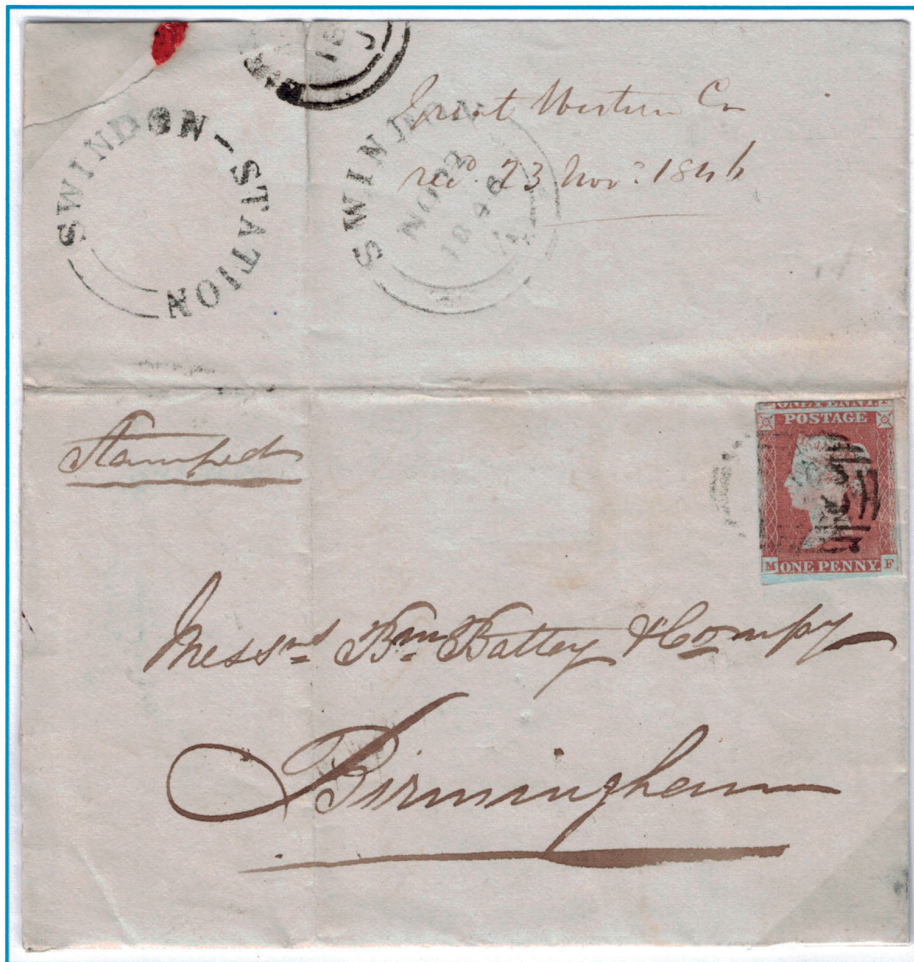 SWINDON-STATION
SWINDON
NO 22
1846
A
Great Western Co
recd. 23 Novr. 1846
Stamped
POSTAGE
M ONE PENNY F
Messrs Bm Battey & Compy
Birmingham